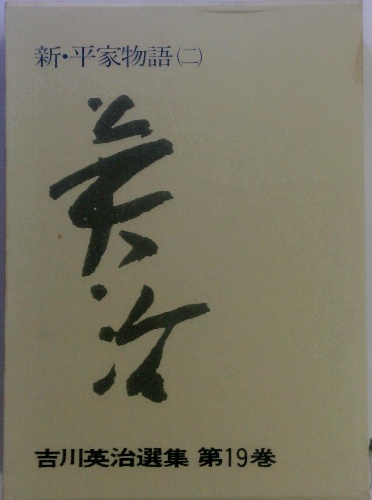 新・平家物語(二)
英治
吉川英治選集 第19巻